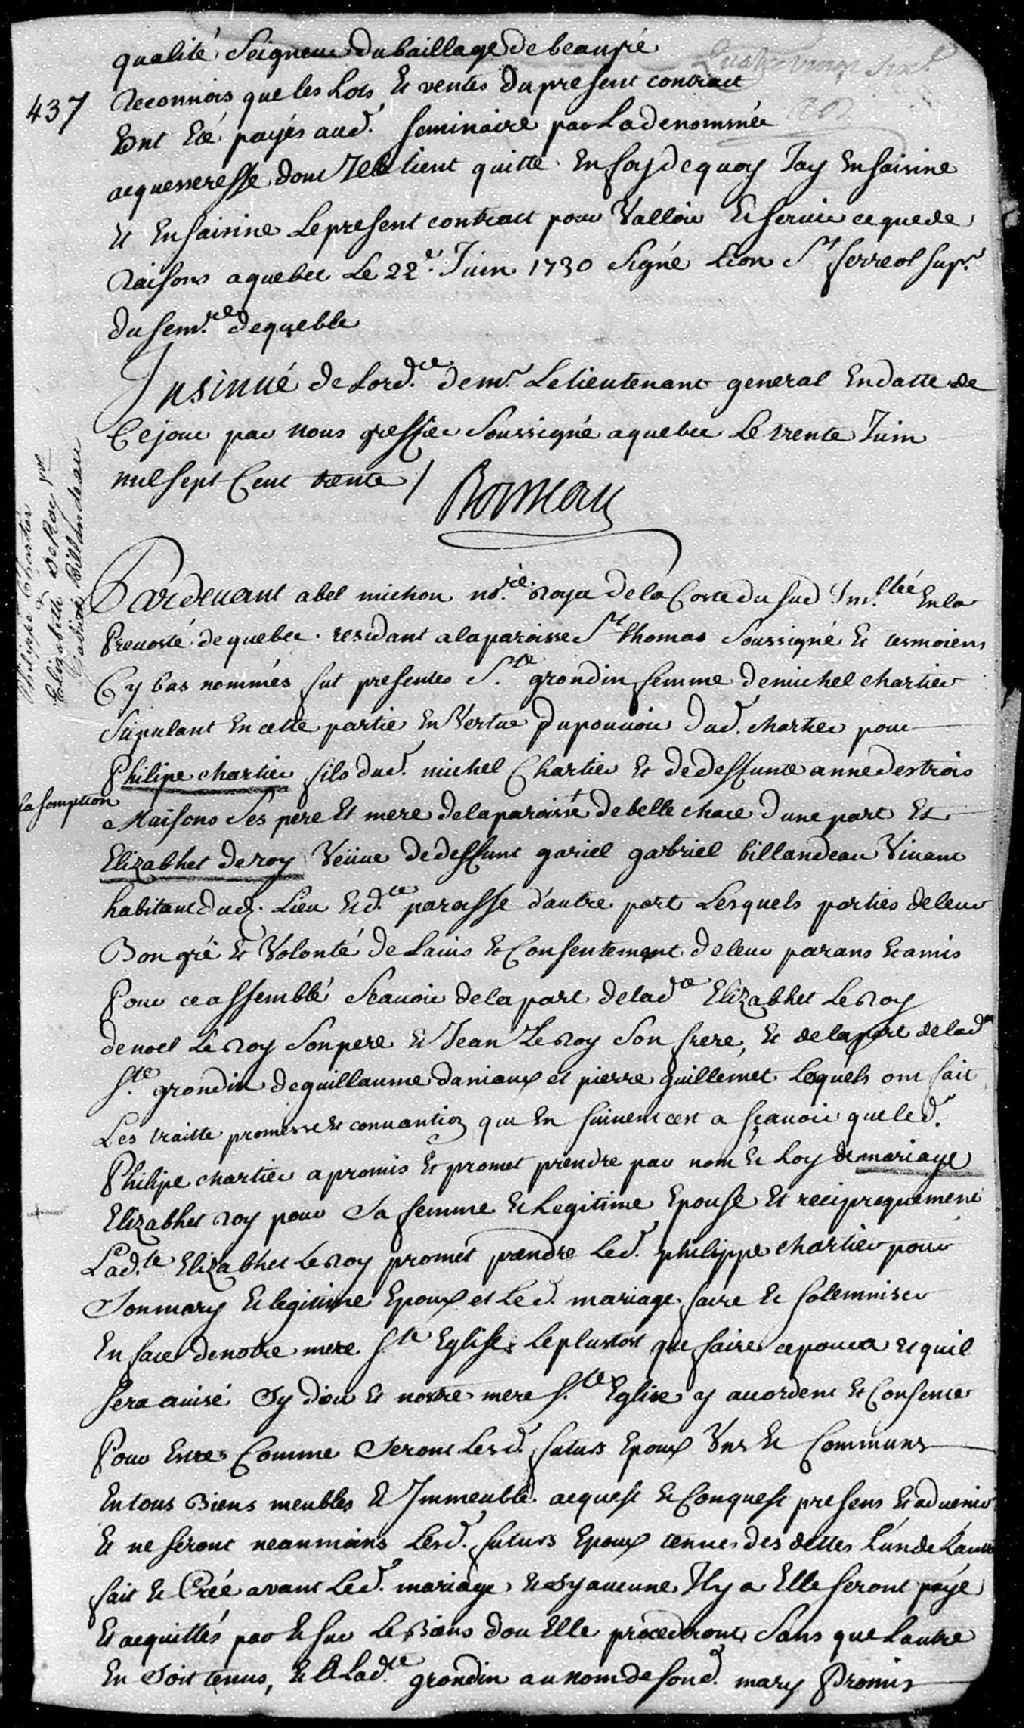 qualité Seigneur du baillage de beaupré
437
Reconnois que les Lots et ventes du present contract
Ont Eté payés aud. seminaire par La denommée
acquesseresse dont Je le tient quitte En foy de quoy Jay Ensaisine
et Ensaisine Le present contract pour Valloir Et servir ce que de
Raisons a quebec Le 22e. Juin 1730 Signé Lion St ferreol supr.
du semre. de queble
Insinué de Lordce. de mr. Le lieutenant general En datte de
Ce jour par nous greffier Soussigné a quebec Le trente Juin
mil sept Cent trente /
Boisseau
Philipe Chartier
Elizabeth DeRoy
Gabriel Billandeau
Pardevant abel michon nore. Royal de la Coste du sud Immlée. En la
Prevosté de quebec residant a la paroisse St thomas Soussigné Et tesmoiens
Cy bas nommés fut presentes Ste grondin femme de michel chartier
Stipulant En cette partie En Vertue du pouvoir dud. chartier pour
Philipe chartier fils dud. michel Chartier Et de deffunte anne destrois
La somption
Maisons Ses pere Et mere de la paroisse de belle chace d'une part Et
Elizabhet de roy Veüve de deffunt gariel gabriel billandeau Vivant
habitant dud. Lieu Et dte. paroisse d'autre part Lesquels parties de leur
Bon gré Et Volonté de Lavis Et Consentement de leur parans Et amis
Pour ce assemblé Scavoir de la part de lade Elizabhet Le Roy
de noel Le Roy Son pere Et Jean Le Roy Son frere, Et de la part de lade
Ste. grondin de guillaume daniaux et pierre guillemet Lequels ont fait
Les traitte promesse Et convantion qui En suivent cest a sçavoir que led.
Philipe chartier a promis Et promet prendre par nom Et Loy de mariage
Elizabhet roy pour Sa femme Et Legitime Epouse Et reciproquement
Ladte. Elizabhet Le Roy promet prendre Led. philippe chartier pour
Son mary Et legitime Epoux et Led. mariage faire Et solemniser
En face de notre mere Ste Eglise Le plustost que faire ce poura et quil
Sera avisé Sy dieu Et nostre mere Ste. Eglise y accordent Et Consente
Pour Estre Comme Seront Lesd. futurs Epoux Uns Et Communs
En tous Biens meubles Et Immeubles acquest Et Conquest presens Et advenir
Et ne seront neanmoins Lesd. futurs Epoux tenus des dettes L'un de Lautre
fait Et Créé avant Led. mariage Et Sy aucune Il y a Elle seront payé
Et acquittés par Et sur Le Biens d'ou Elle procedront Sans que Lautre
En Soit tenus, Et Lade. grondin au nom de sond. mary Promis